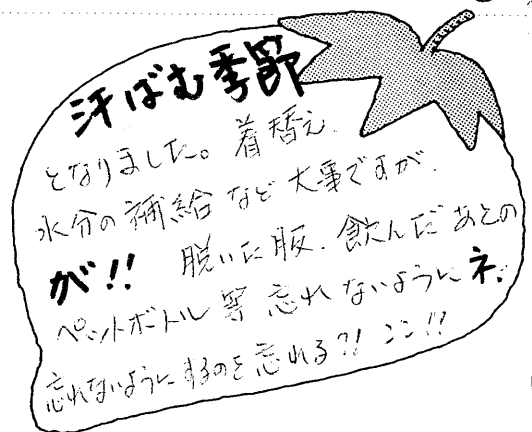 汗ばむ季節
となりました。着替え、
水分の補給など大事ですが、
が!! 脱いだ服、飲んだあとの
ペットボトル等忘れないようにネ。
忘れないようにするのを忘れる?! ンン!!